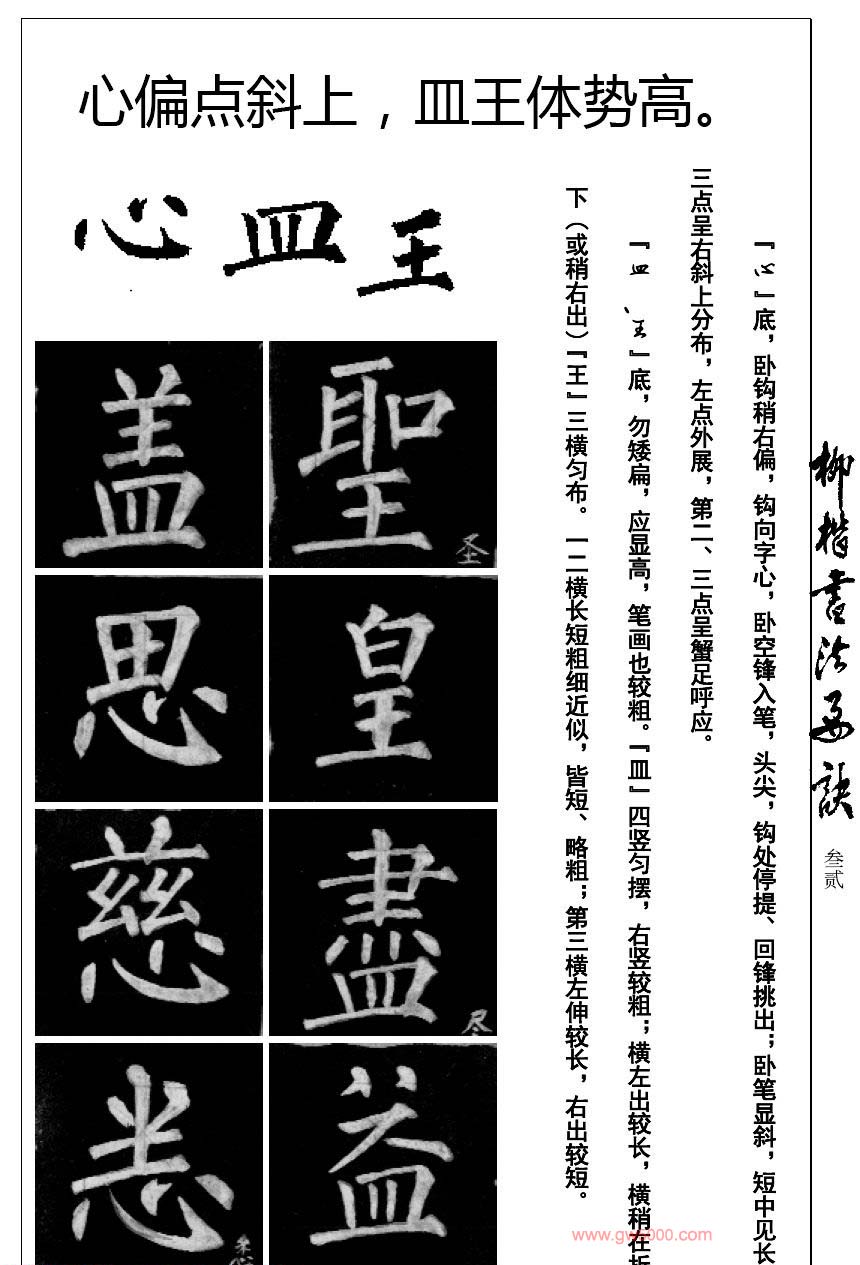 心偏点斜上，皿王体势高。
心 皿 王
『心』底，卧钩稍右偏，钩向字心，卧空锋入笔，头尖，钩处停提、回锋挑出；卧笔显斜，短中见长
三点呈右斜上分布，左点外展，第二、三点呈蟹足呼应。
『皿、王』底，勿矮扁，应显高，笔画也较粗。『皿』四竖匀摆，右竖较粗；横左出较长，横稍在折
下（或稍右出）『王』三横匀布。一二横长短粗细近似，皆短、略粗；第三横左伸较长，右出较短。
盖 聖
圣
思 皇
慈 盡
尽
恙 益
柳楷书法要诀
叁贰
www.gw5000.com